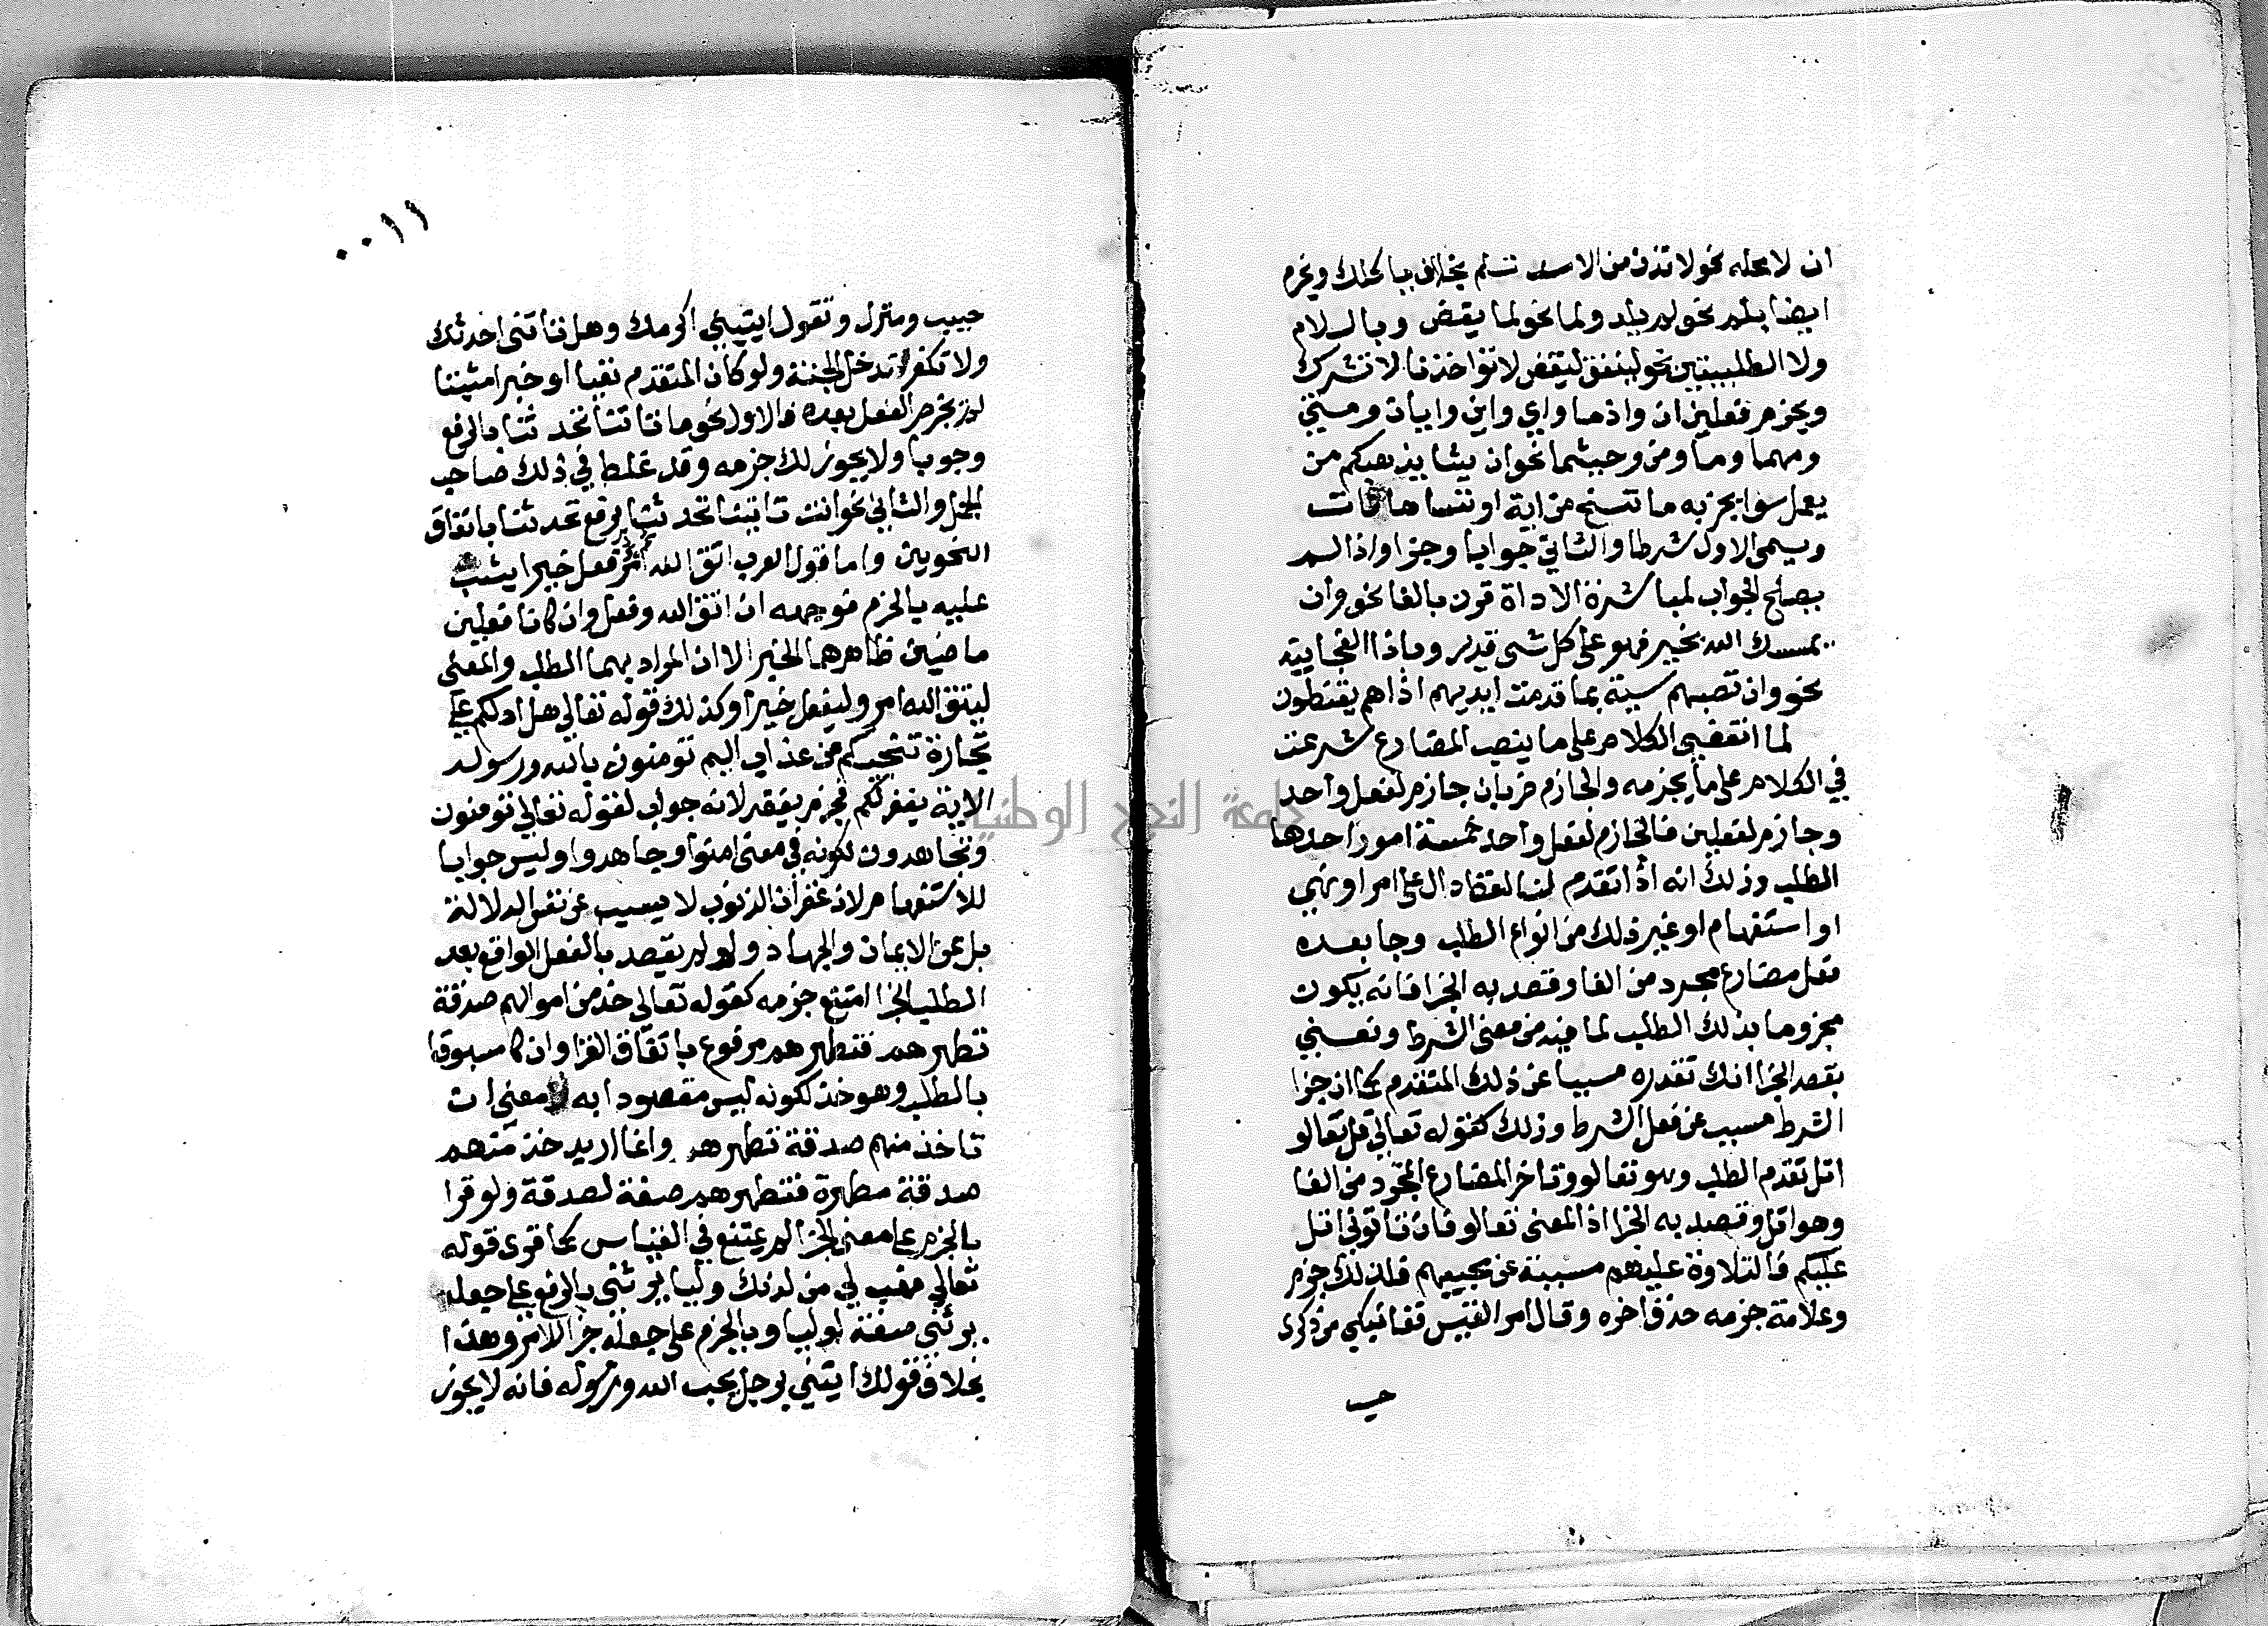 ان لا محله نحو لا تدن من الاسد تسلم بخلاف ياكلك ويجزم
ايضا بلم نحو لم يلد ولما نحو لما يقض وبالـلام
ولا الطلبيتين نحو لينفق ليقض لا تواخذنا لا تشرك
ويجزم فعلين ان واذما واي واين وايان ومتي
ومهما وما ومن وحيثما نحو ان يشا يذهبكم من
يعمل سوا يجز به ما ننسخ من اية او ننساها نات
ويسمي الاول شرطا والثاني جوابا وجزا واذا لم
يصلح الجواب لمباشرة الاداة قرن بالفا نحو وان
يمسسك الله بخير فهو علي كل شي قدير وباذا الفجاييه
نحو وان تصبهم سيية بما قدمت ايديهم اذا هم يقنطون
لما انقضي الكلام علي ما ينصب المضارع شرعت
في الكلام علي ما يجزمه والجازم ضربان جازم لفعل واحد
وجازم لفعلين فالجازم لفعل واحد خمسة امور احدها
الطلب وذلك انه اذا تقدم لنا لفظ دال علي امر او نهي
او استفهام او غير ذلك من انواع الطلب وجا بعده
فعل مضارع مجرد من الفا وقصد به الجزا فانه يكون
مجزوما بذلك الطلب لما فيه من معني الشرط ونعني
بقصد الجزا انك تقدره مسببا عن ذلك المتقدم كما ان جزا
الشرط مسبب عن فعل الشرط وذلك كقوله تعالي قل تعالو
اتل تقدم الطلب وهو تعالو وتاخر المضارع المجرد من الفا
وهو اتل وقصد به الجزا اذ المعني تعالو فان تاتوني اتل
عليكم فالتلاوة عليهم مسببة عن مجييهم فلذلك جزم
وعلامة جزمه حذف اخره وقال امر القيس قفا نبكي من ذكري
حبيب
٠٠١١
حبيب ومنزل وتقول ايتيني اكرمك وهل تاتني احدثك
ولا تكفر تدخل الجنة ولو كان المتقدم نفيا او خبرا مثبتا
لم يجزم الفعل بعده فالاول نحو ما تاتنا تحدثنا بالرفع
وجوبا ولا يجوز لك جزمه وقد غلط في ذلك صاحب
الجمل والثاني نحو انت تاتينا تحدثنا برفع تحدثنا باتفاق
النحويين واما قول العرب اتق الله امرؤ فعل خيرا يثب
عليه بالجزم فوجهه ان اتق الله وفعل وان كانا فعلين
ماضيين ظاهرهما الخبر الا ان المراد بهما الطلب والمعني
ليتق الله امر وليفعل خيرا وكذلك قوله تعالي هل ادلكم علي
تجارة تنجيكم من عذاب اليم تومنون بالله ورسوله
الاية يغفر لكم فجزم يغفر لانه جواب لقوله تعالي تومنون
وتجاهدون لكونه في معني امنوا وجاهدوا وليس جوابا
للاستفهام لان غفران الذنوب لا يتسبب عن نفس الدلالة
بل عن الايمان والجهاد ولو لم يقصد بالفعل الواقع بعد
الطلب الجزا امتنع جزمه كقوله تعالي خذ من اموالهم صدقة
تطهرهم فتطهرهم مرفوع باتفاق القرا وان كا مسبوقا
بالطلب وهو خذ لكونه ليس مقصودا به معني ان
تاخذ منهم صدقة تطهرهم وانما اريد خذ منهم
صدقة مطهرة فتطهرهم صفة لصدقة ولو قرا
بالجزم علي معني الجزا لم يمتنع في القياس كما قري قوله
تعالي فهب لي من لدنك وليا يرثني بالرفع علي جعله
يرثني صفة لوليا وبالجزم علي جعله جزا للامر وهذا
بخلاف قولك ايتني برجل يحب الله ورسوله فانه لا يجوز